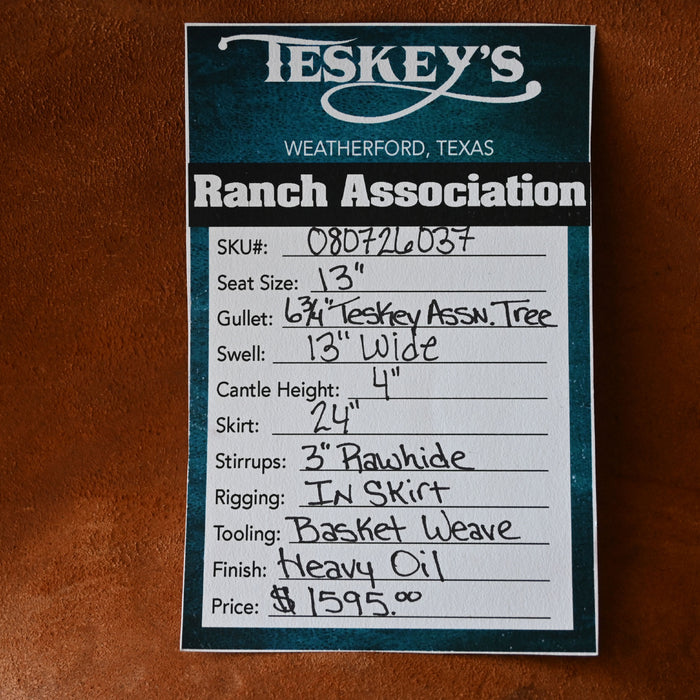 TESKEY'S
WEATHERFORD, TEXAS
Ranch Association
SKU#: 080726037
Seat Size: 13"
Gullet: 6¾" Teskey Assn. Tree
Swell: 13" Wide
Cantle Height: 4"
Skirt: 24"
Stirrups: 3" Rawhide
Rigging: In Skirt
Tooling: Basket Weave
Finish: Heavy Oil
Price: $1595.00